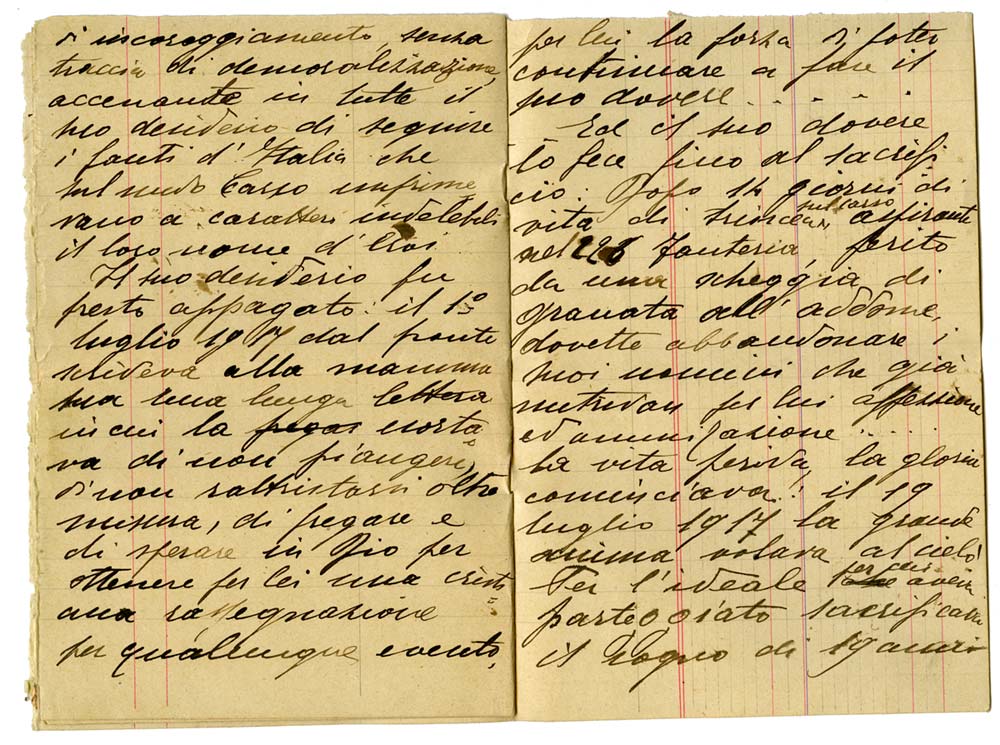 di incoraggiamento, senza
traccia di demoralizzazione,
accenante in tutte il
suo desiderio di seguire
i fanti d'Italia che
sul nudo Carso imprime
vano a caratteri indelebili
il loro nome d'Eroi
Il suo desiderio fu
presto appagato: il 1º
luglio 1917 dal fronte
scrideva alla mamma
sua una lunga lettera
in cui la pregav esorta
va di non piangere,
di non rattristarsi oltre
misura, di pregare e
di sperare in Dio per
ottenere per lei una cristi
ana rassegnazione
per qualunque evento,
per lui la forza di poter
continuare a fare il
suo dovere......
Ed il suo dovere
lo fece fino al sacrifi
cio. Dopo 14 giorni di
vita di trincea sul carso, aspirante
nel 226 Fanteria, ferito
da una scheggia di
granata all'addome,
dovette abbandonare i
suoi uomini che già
nutrivan per lui affezione
ed ammirazione.....
La vita perdva, la gloria
cominciava! il 19
luglio 1917 la grande
anima volava al cielo
Per l'ideale per cui aveva
parteggiato sacrificava
il sogno di 19 anni